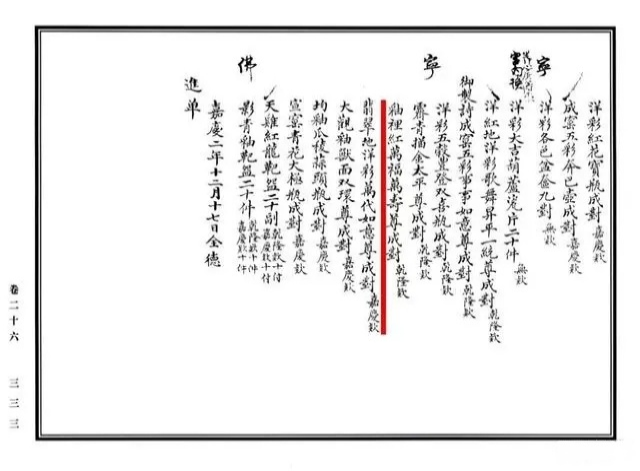 洋彩紅花寶瓶成對 嘉慶欵
寧
成窑五彩 巴壺成對 嘉慶欵
洋彩各色盖盌九對 無欵
洋彩大吉葫蘆瓷片二十件 無欵
洋紅地洋彩歌舞昇平一統尊成對 乾隆欵
御製詩成窑五彩事事如意尊成對 乾隆欵
寧
洋彩五穀豐登双喜瓶成對 乾隆欵
霽青描金太平尊成對 乾隆欵
釉裡紅萬福萬壽尊成對 乾隆欵
翡翠地洋彩萬代如意尊成對 嘉慶欵
大觀釉獸面双環尊成對 嘉慶欵
均釉瓜稜蒜頭瓶成對 嘉慶欵
宣窑青花太極瓶成對 嘉慶欵
佛
天雞紅龍靶盌二十副 乾隆欵十付 嘉慶欵十付
影青釉靶盌二十件 乾隆欵十件 嘉慶欵十件
嘉慶二年十二月十七日全德
進单
卷二十六
三三三